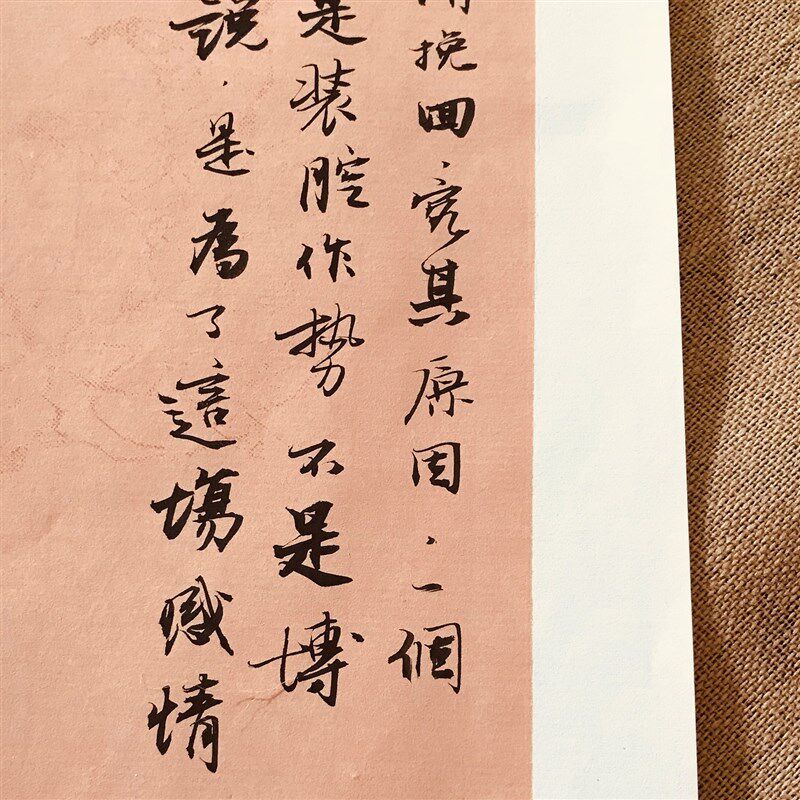 挽回，究其原因，一個
是装腔作势不是博
說，是為了這塲感情